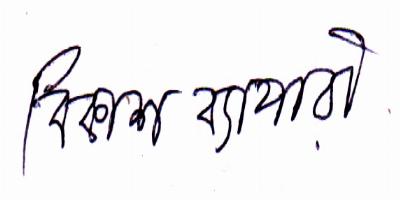 বিকাশ ব্যাপারী